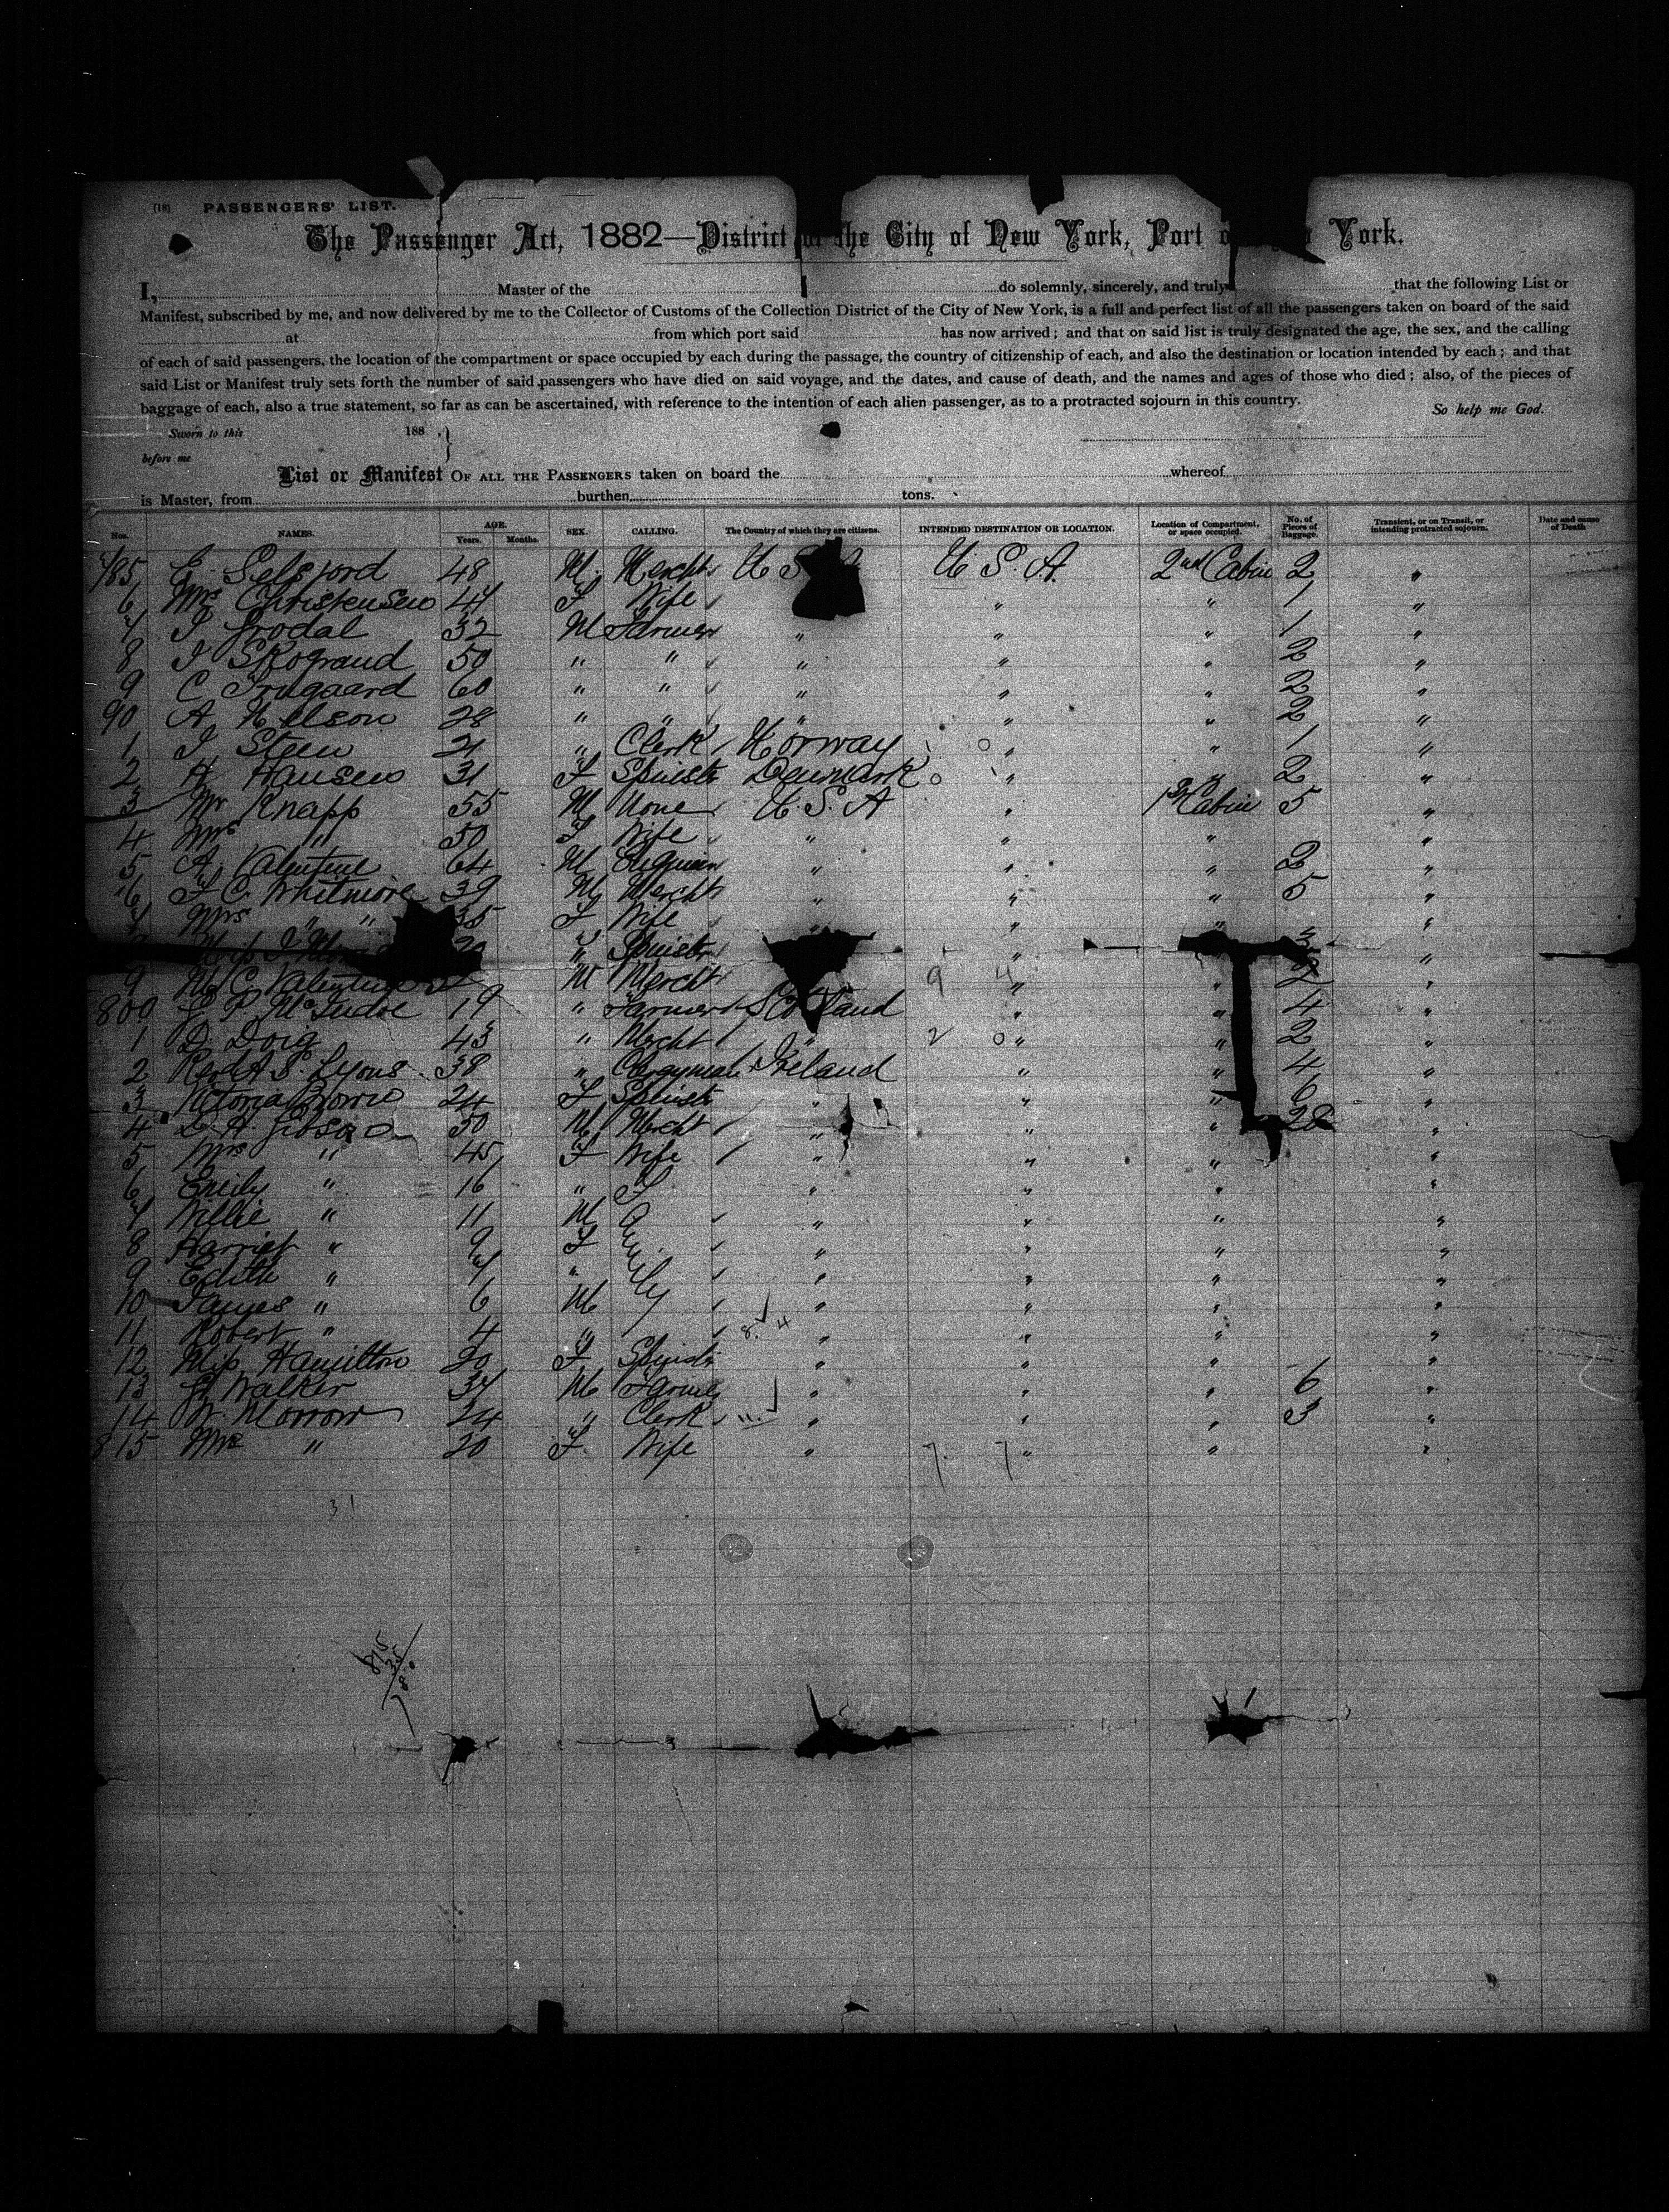 [18] PASSENGERS' LIST.
The Passenger Act, 1882—District of the City of New York, Port of York.
I, Master of the do solemnly, sincerely, and truly that the following List or
Manifest, subscribed by me, and now delivered by me to the Collector of Customs of the Collection District of the City of New York, is a full and perfect list of all the passengers taken on board of the said
at from which port said has now arrived; and that on said list is truly designated the age, the sex, and the calling
of each of said passengers, the location of the compartment or space occupied by each during the passage, the country of citizenship of each, and also the destination or location intended by each; and that
said List or Manifest truly sets forth the number of said passengers who have died on said voyage, and the dates, and cause of death, and the names and ages of those who died; also, of the pieces of
baggage of each, also a true statement, so far as can be ascertained, with reference to the intention of each alien passenger, as to a protracted sojourn in this country.
So help me God.
Sworn to this 188
before me
List or Manifest OF ALL THE PASSENGERS taken on board the whereof
is Master, from burthen tons.
Nos. NAMES. AGE. Years. Months. SEX. CALLING. The Country of which they are citizens. INTENDED DESTINATION OR LOCATION. Location of Compartment, or space occupied. No. of Pieces of Baggage. Transient, or on Transit, or intending protracted sojourn. Date and cause of Death
785 48 M. Mercht U S U S. A. 2nd Cabin 2 "
6 Mrs Christensen 44 F Wife " " 1 "
7 I Grodal 32 M Farmer " " " 1 "
8 I Skograud 50 " " " " " 2 "
9 C 60 " " " " " 2 "
90 A Nelson 28 " " " " " 2 "
1 I Steen 21 " Clerk Norway " " 1 "
2 H Hansen 31 F Spinstr Denmark " " 2 "
3 Mr Knapp 55 M None U. S. A " 1st Cabin 5 "
4 Mrs " 50 F Wife " " " "
5 A. Valentine 64 M " " " 2 "
6 F C. Whitmore 39 M Mercht " " " 5 "
7 Mrs " " 35 F Wife " " " "
Miss I " Spinstr " "
9 M C Valentine M Mercht " " "
800 19 " Farmer Scotland " " 4 "
1 D. Doig 43 " Mercht " " " 2 "
2 Revd A S. Lyons 38 " Clergyman Ireland " " 4 "
3 Victoria 24 F Spinstr " " " 6 "
4 Gibson 50 M Mercht " " " "
5 Mrs " 45 F Wife " " " "
6 Emily " 16 " F " " " "
7 Willie " 11 M a " " " "
8 Harriet " 9 F m " " " "
9 Edith " 7 " il " " " "
10 James " 6 M y " " " "
11 Robert " 4 " " " " "
12 Miss Hamilton 20 F Spinstr " " " "
13 Walker 34 M Farmer " " " 6 "
14 W. Morrow 24 " Clerk " " " 3 "
815 Mrs " 20 F. Wife " " " "
31
815
35